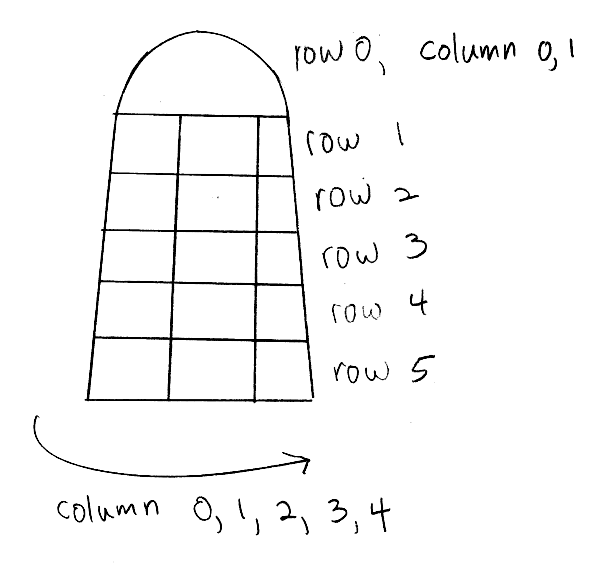 row 0, column 0,1
row 1
row 2
row 3
row 4
row 5
column 0, 1, 2, 3, 4